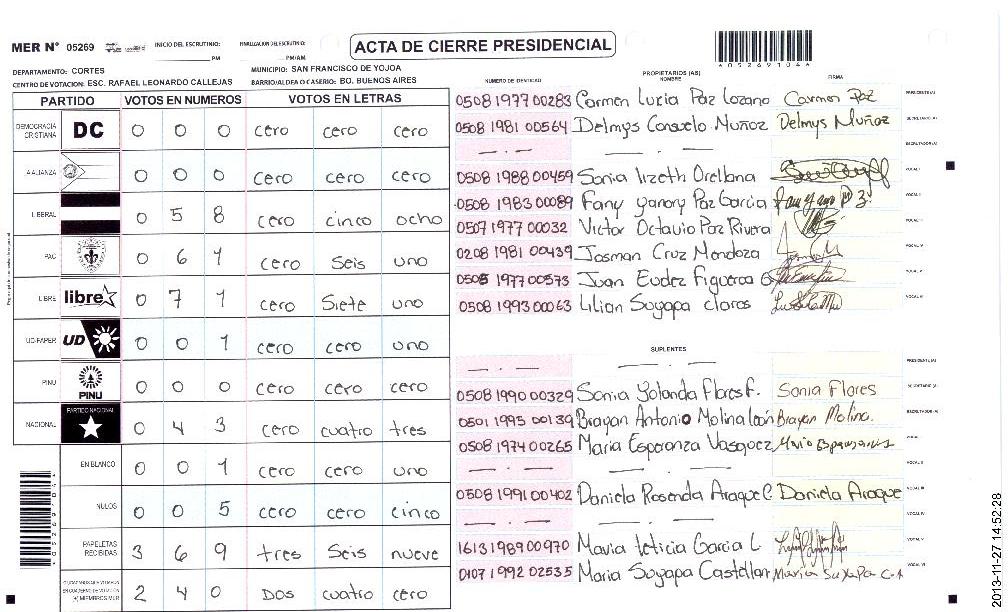 MER N° 05269 INICIO DEL ESCRUTINIO: PM FINALIZACION DEL ESCRUTINIO: PM/AM
ACTA DE CIERRE PRESIDENCIAL
DEPARTAMENTO: CORTES MUNICIPIO: SAN FRANCISCO DE YOJOA
CENTRO DE VOTACION: ESC. RAFAEL LEONARDO CALLEJAS BARRIO/ALDEA O CASERIO: BO. BUENOS AIRES
PARTIDO VOTOS EN NUMEROS VOTOS EN LETRAS
DEMOCRACIA CRISTIANA DC 0 0 0 cero cero cero
ALIANZA 0 0 0 cero cero cero
LIBERAL 0 5 8 cero cinco ocho
PAC 0 6 1 cero Seis uno
LIBRE libre 0 7 1 cero Siete uno
UD/FAPER UD 0 0 1 cero cero uno
PINU PINU 0 0 0 cero cero cero
NACIONAL PARTIDO NACIONAL 0 4 3 cero cuatro tres
EN BLANCO 0 0 1 cero cero uno
NULOS 0 0 5 cero cero cinco
PAPELETAS RECIBIDAS 3 6 9 tres Seis nueve
2 4 0 Dos cuatro cero
PROPIETARIOS (AS)
NUMERO DE IDENTIDAD NOMBRE FIRMA
0508 1977 00283 Carmen Luria Paz Lozano Carmen Paz PRESIDENTE(A)
0508 1981 00564 Delmys Consuelo Muñoz Delmys Muñoz SECRETARIO (A)
— . — — . — ESCRUTADOR(A)
0508 1988 00459 Sonia lizeth Orellana VOCAL I
0508 1983 00089 Fany Yanory Paz Garcia VOCAL II
0507 1977 00032 Victor Octavio Paz Rivera VOCAL III
0208 1981 00439 Josman Cruz Mendoza VOCAL IV
0505 1977 00573 Juan Eudez Figueroa G VOCAL V
0508 1993 00063 Lilian Suyapa claros VOCAL VI
SUPLENTES
— . — — . — PRESIDENTE (A)
0508 1990 00329 Sonia Yolanda Flores F. Sonia Flores SECRETARIO (A)
0501 1995 00139 Brayan Antonio Molina león Brayan Molina. ESCRUTADOR(A)
0508 1974 00265 Maria Esperanza Vasquez Maria Esperanza VOCAL I
— . — — . — VOCAL II
0508 1991 00402 Daniela Rosenda Araque C. Daniela Araque VOCAL III
— . — — . — VOCAL IV
1613 1989 00970 Maria leticia Garcia L VOCAL V
0107 1992 02535 Maria Suyapa Castellan Maria Suyapa C.A VOCAL VI
2013-11-27 14:52:28